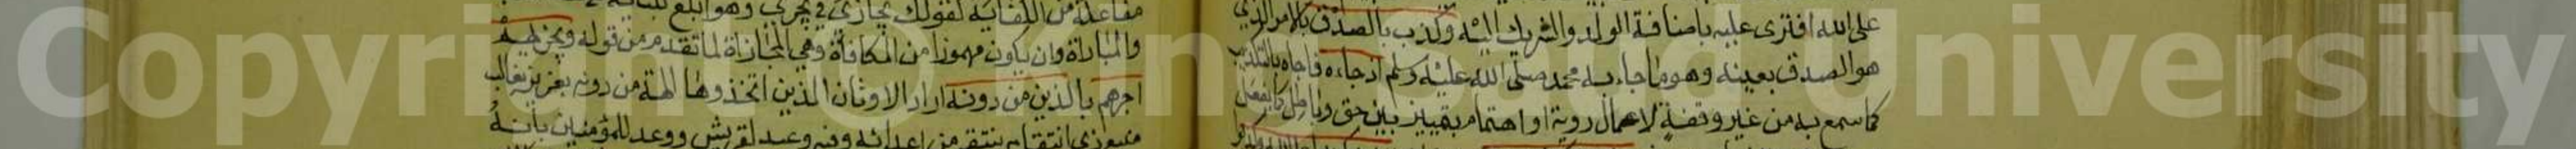 على الله افترى عليه باضافة الولد والشريك اليه وكذب بالصدق بالامر الذي
هو الصدق بعينه وهو ما جاء به محمد صلى الله عليه وسلم اذ جاءه فاجاه بالتكذيب
كما سمع به من غير وقفة لاعمال روية او اهتمام بتمييز بين حق وباطل كما يفعل
مفاعلة من الكفاية كقولك يجازي في يجري وهو ابلغ
والمباراة وان يكون مهموزا من المكافاة وهي المجازاة لما تقدم من قوله ويجزيهم
اجرهم بالذين من دونه اراد الاوثان الذين اتخذوها الهة من دونه بعزيز بغالب
منيع ذي انتقام ينتقم من اعدائه وفيه وعيد لقريش ووعد للمؤمنين بانه
Copyright © University